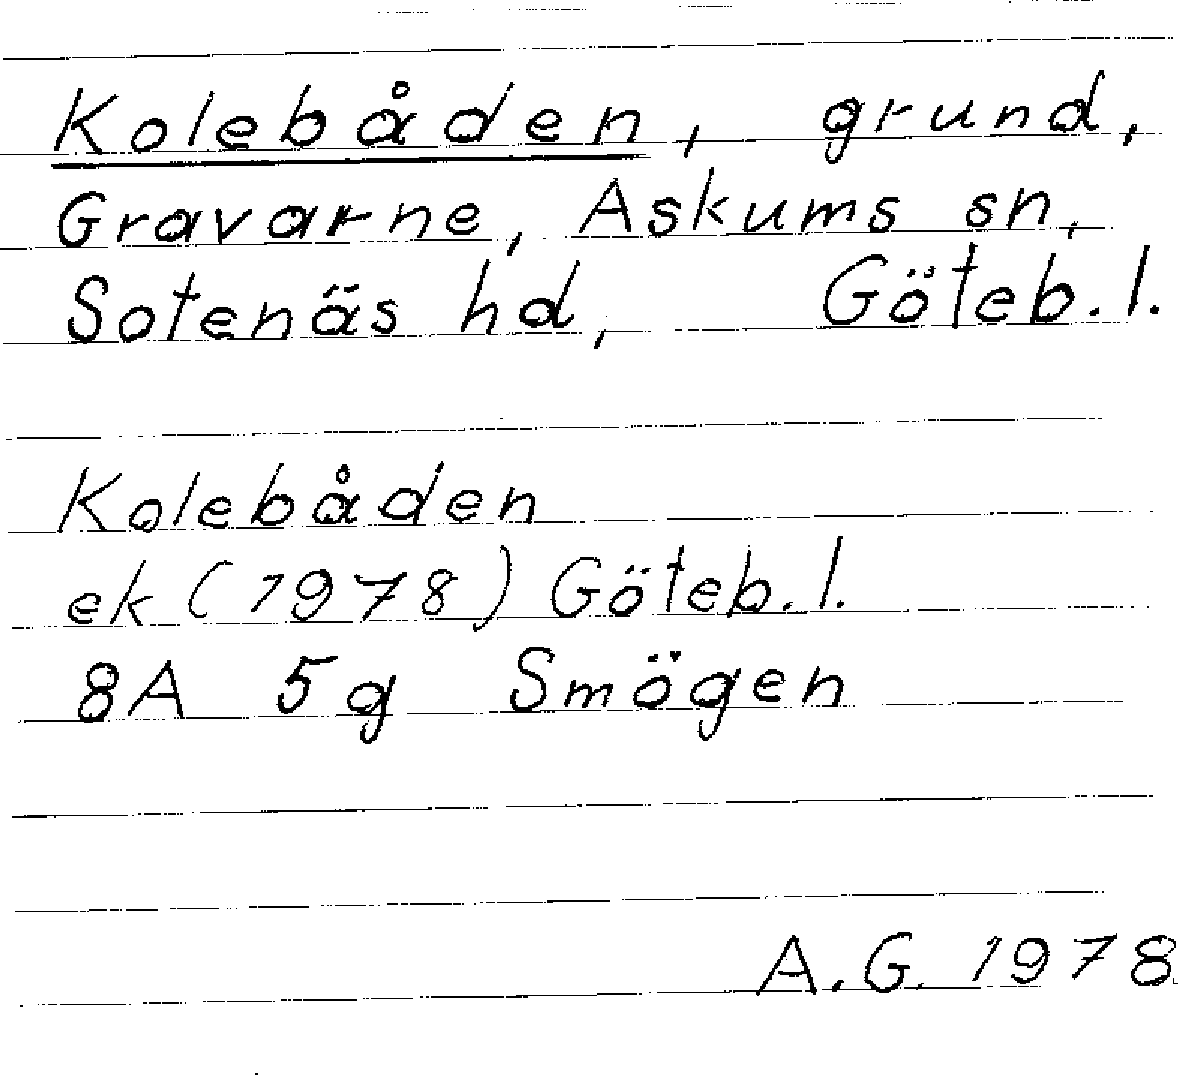 Kolebåden, grund,
Gravarne, Askums sn,
Sotenäs hd, Göteb. l.
Kolebåden
ek (1978) Göteb. l.
8A 5g Smögen
A.G. 1978